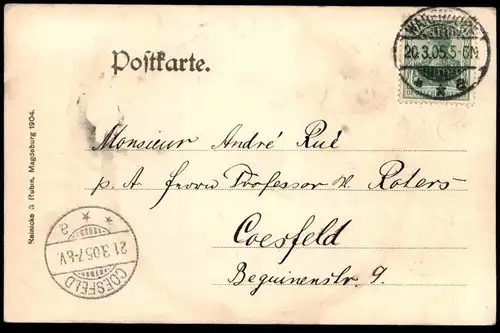 Postkarte.
WARENDORF
20.3.05.5-6N
Monsieur André Rué
p. A. Herrn Professor W. Roters
Coesfeld
Beguinenstr. 9.
Reinicke & Rubin, Magdeburg 1904.
COESFELD
21.3.05.7-8V
a